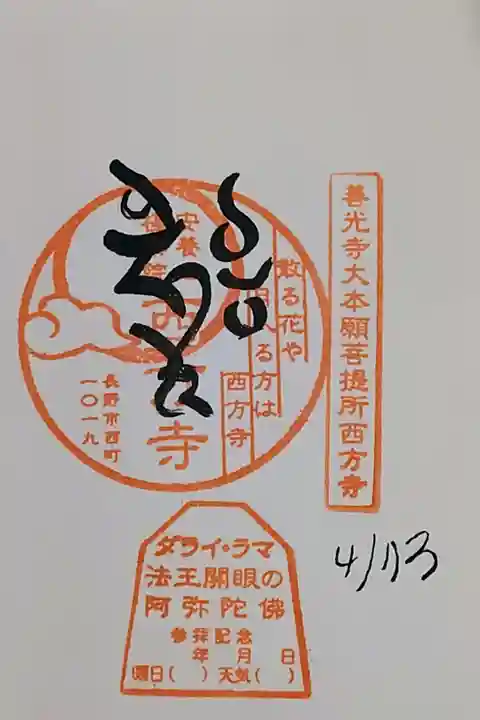 善光寺大本願菩提所西方寺
散る花や
日入る方は
西方寺
安養
西方寺
長野市西町
一〇一九
ダライ・ラマ
法王開眼の
阿弥陀佛
参拝記念
年 月 日
曜日( ) 天気( )
4/13